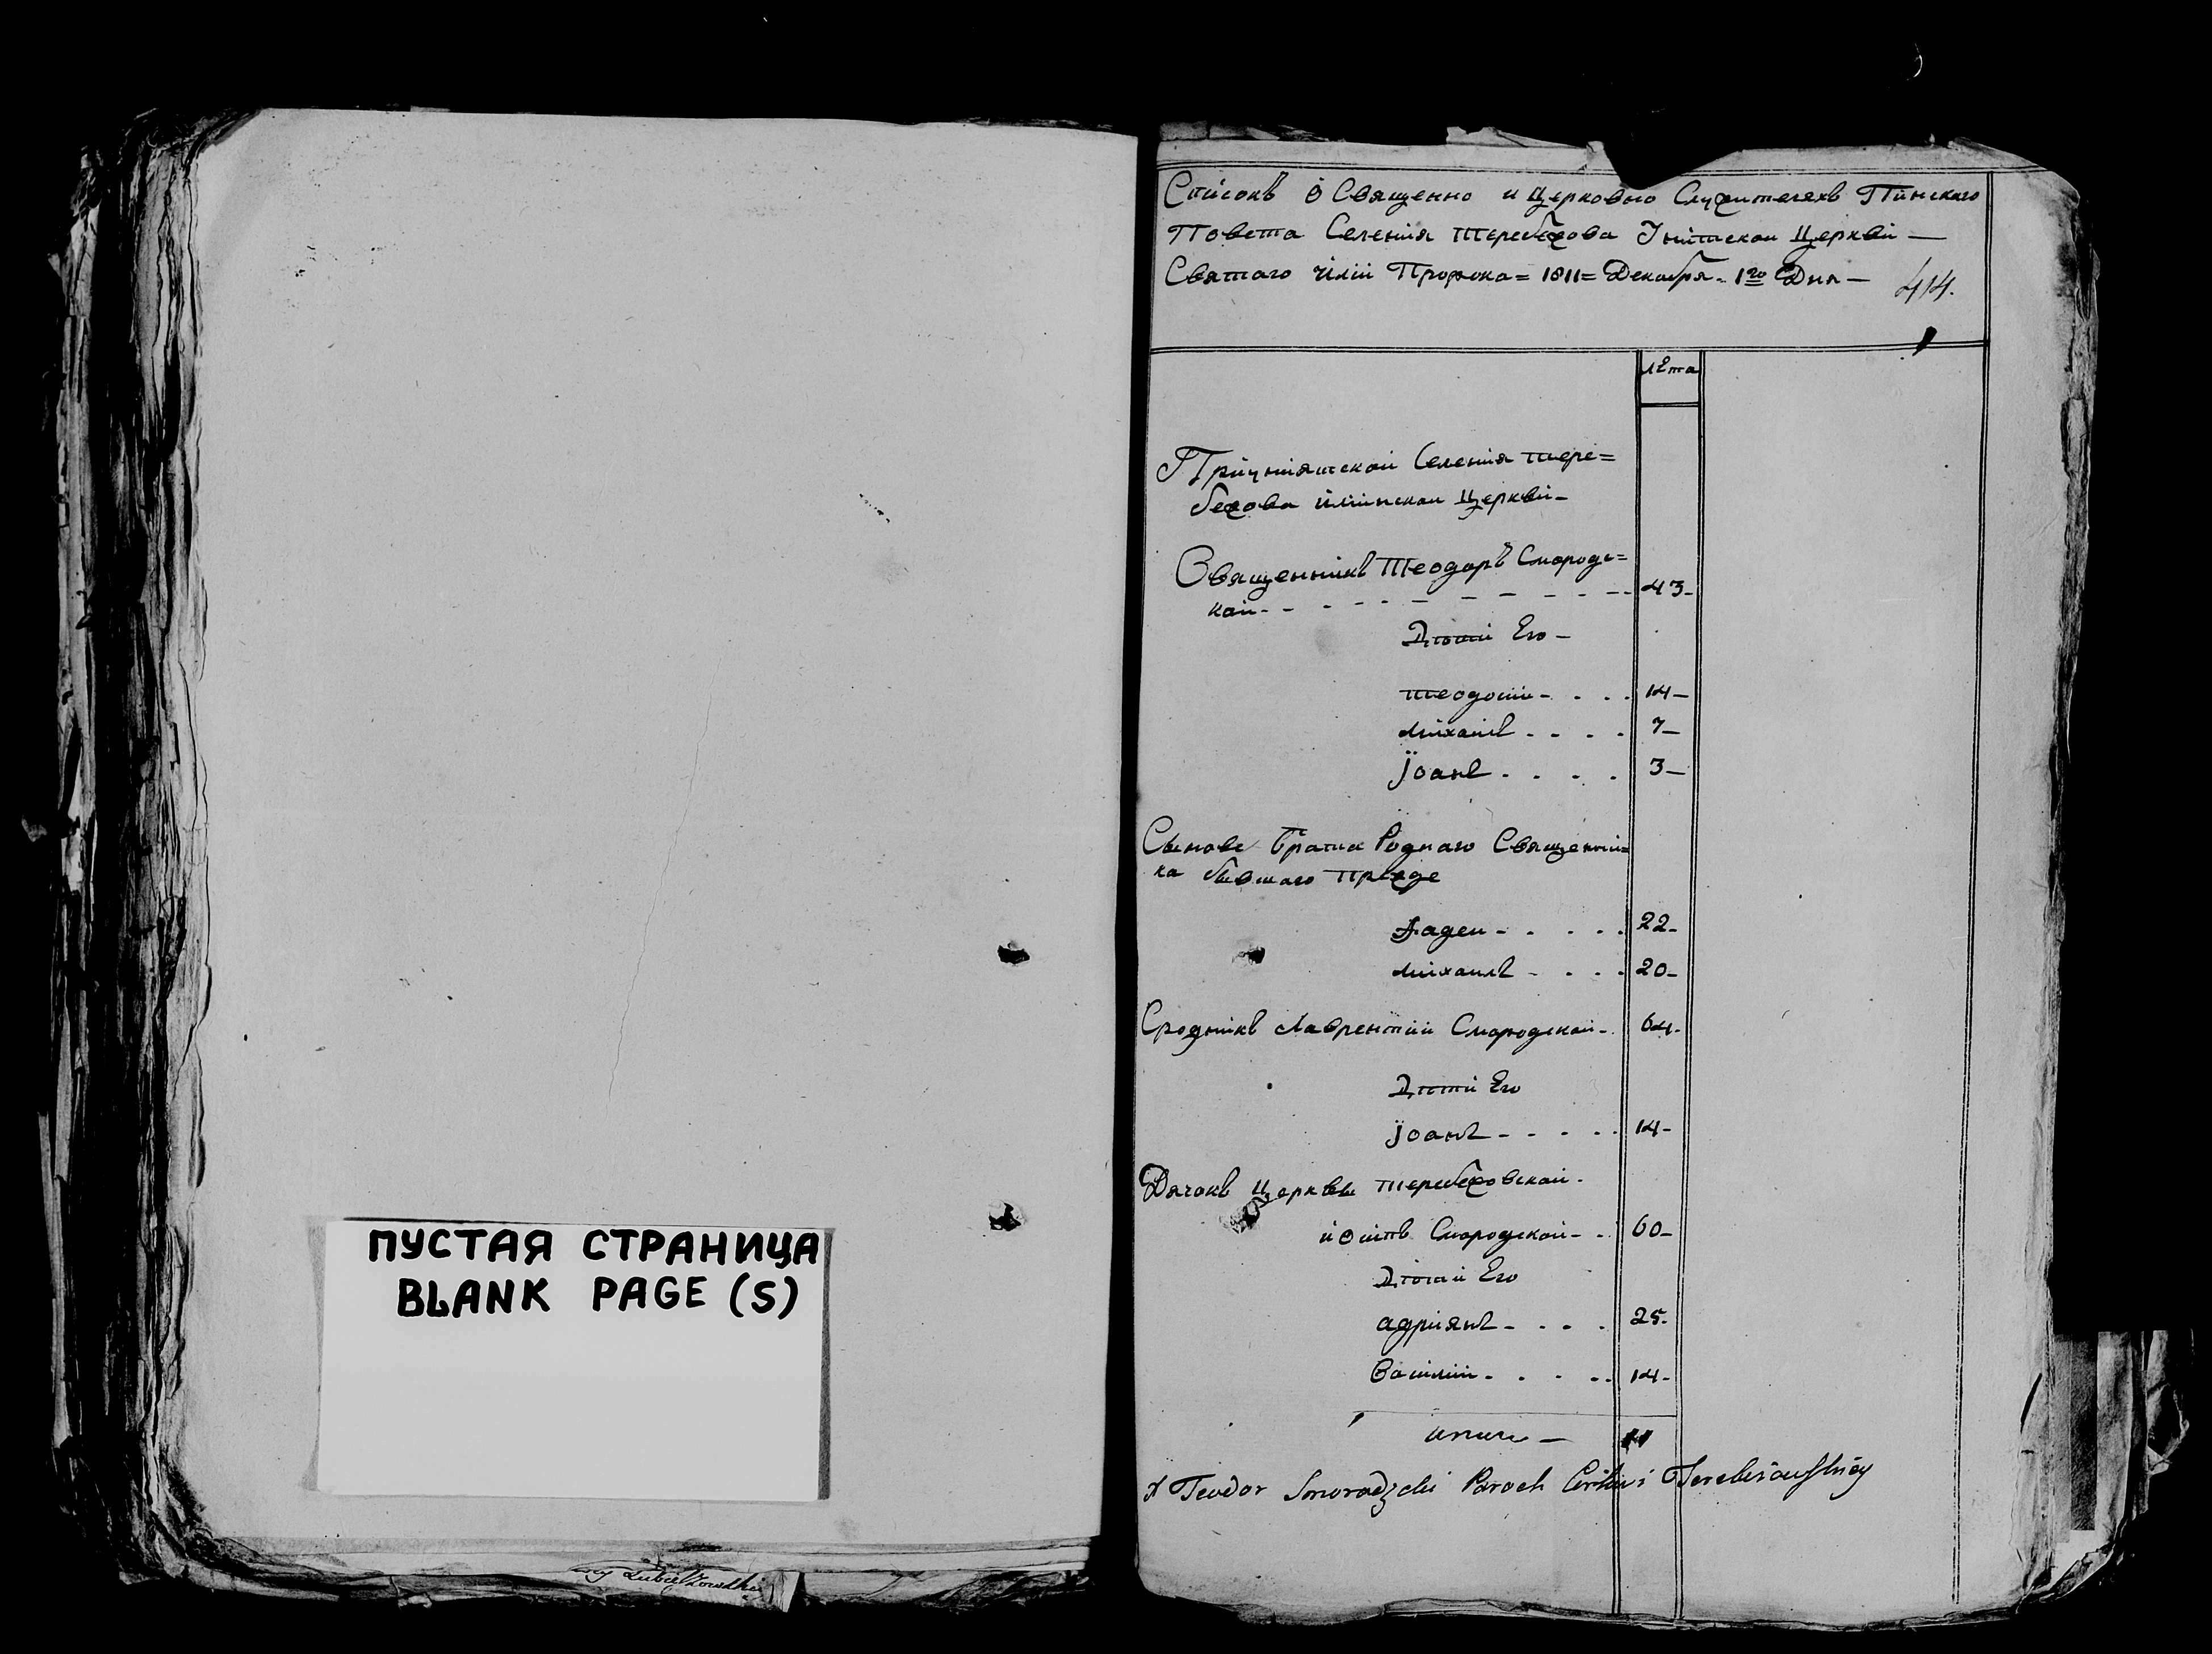 ПУСТАЯ СТРАНИЦА
BLANK PAGE (S)
Списокъ о Священно и Церковно Служителехъ Пинскаго
Повета Селения Теребежова Унитской Церкви —
Святаго Илїи Пророка = 1811 = Декабря - 1го Дня —
414.
лета
При Униятской Селения Тере=
бежова Илиинской Церкви —
Священникъ Теодоръ Смородс=
кой - - - - - - - - - 43 -
Дети Его —
Теодосий - - - - 14 —
Михаилъ - - - - 7 —
Їоанъ - - - - 3 —
Сынове Брата Роднаго Священни=
ка бывшаго Прежде
Фадеи - - - - - 22 -
Михаилъ - - - - 20 -
Сродникъ Лаврентий Смородской - 64 -
Дети Его
Їоанъ - - - - - 14 -
Дячокъ Церквы Теребежовской -
Иосипъ Смородской - - 60 -
Дети Его
Адриянъ - - - - 25 -
Василий - - - - - 14 -
Итого — 11
X Teodor Smoradzki Paroch Cerkwi Terebieżowskiey